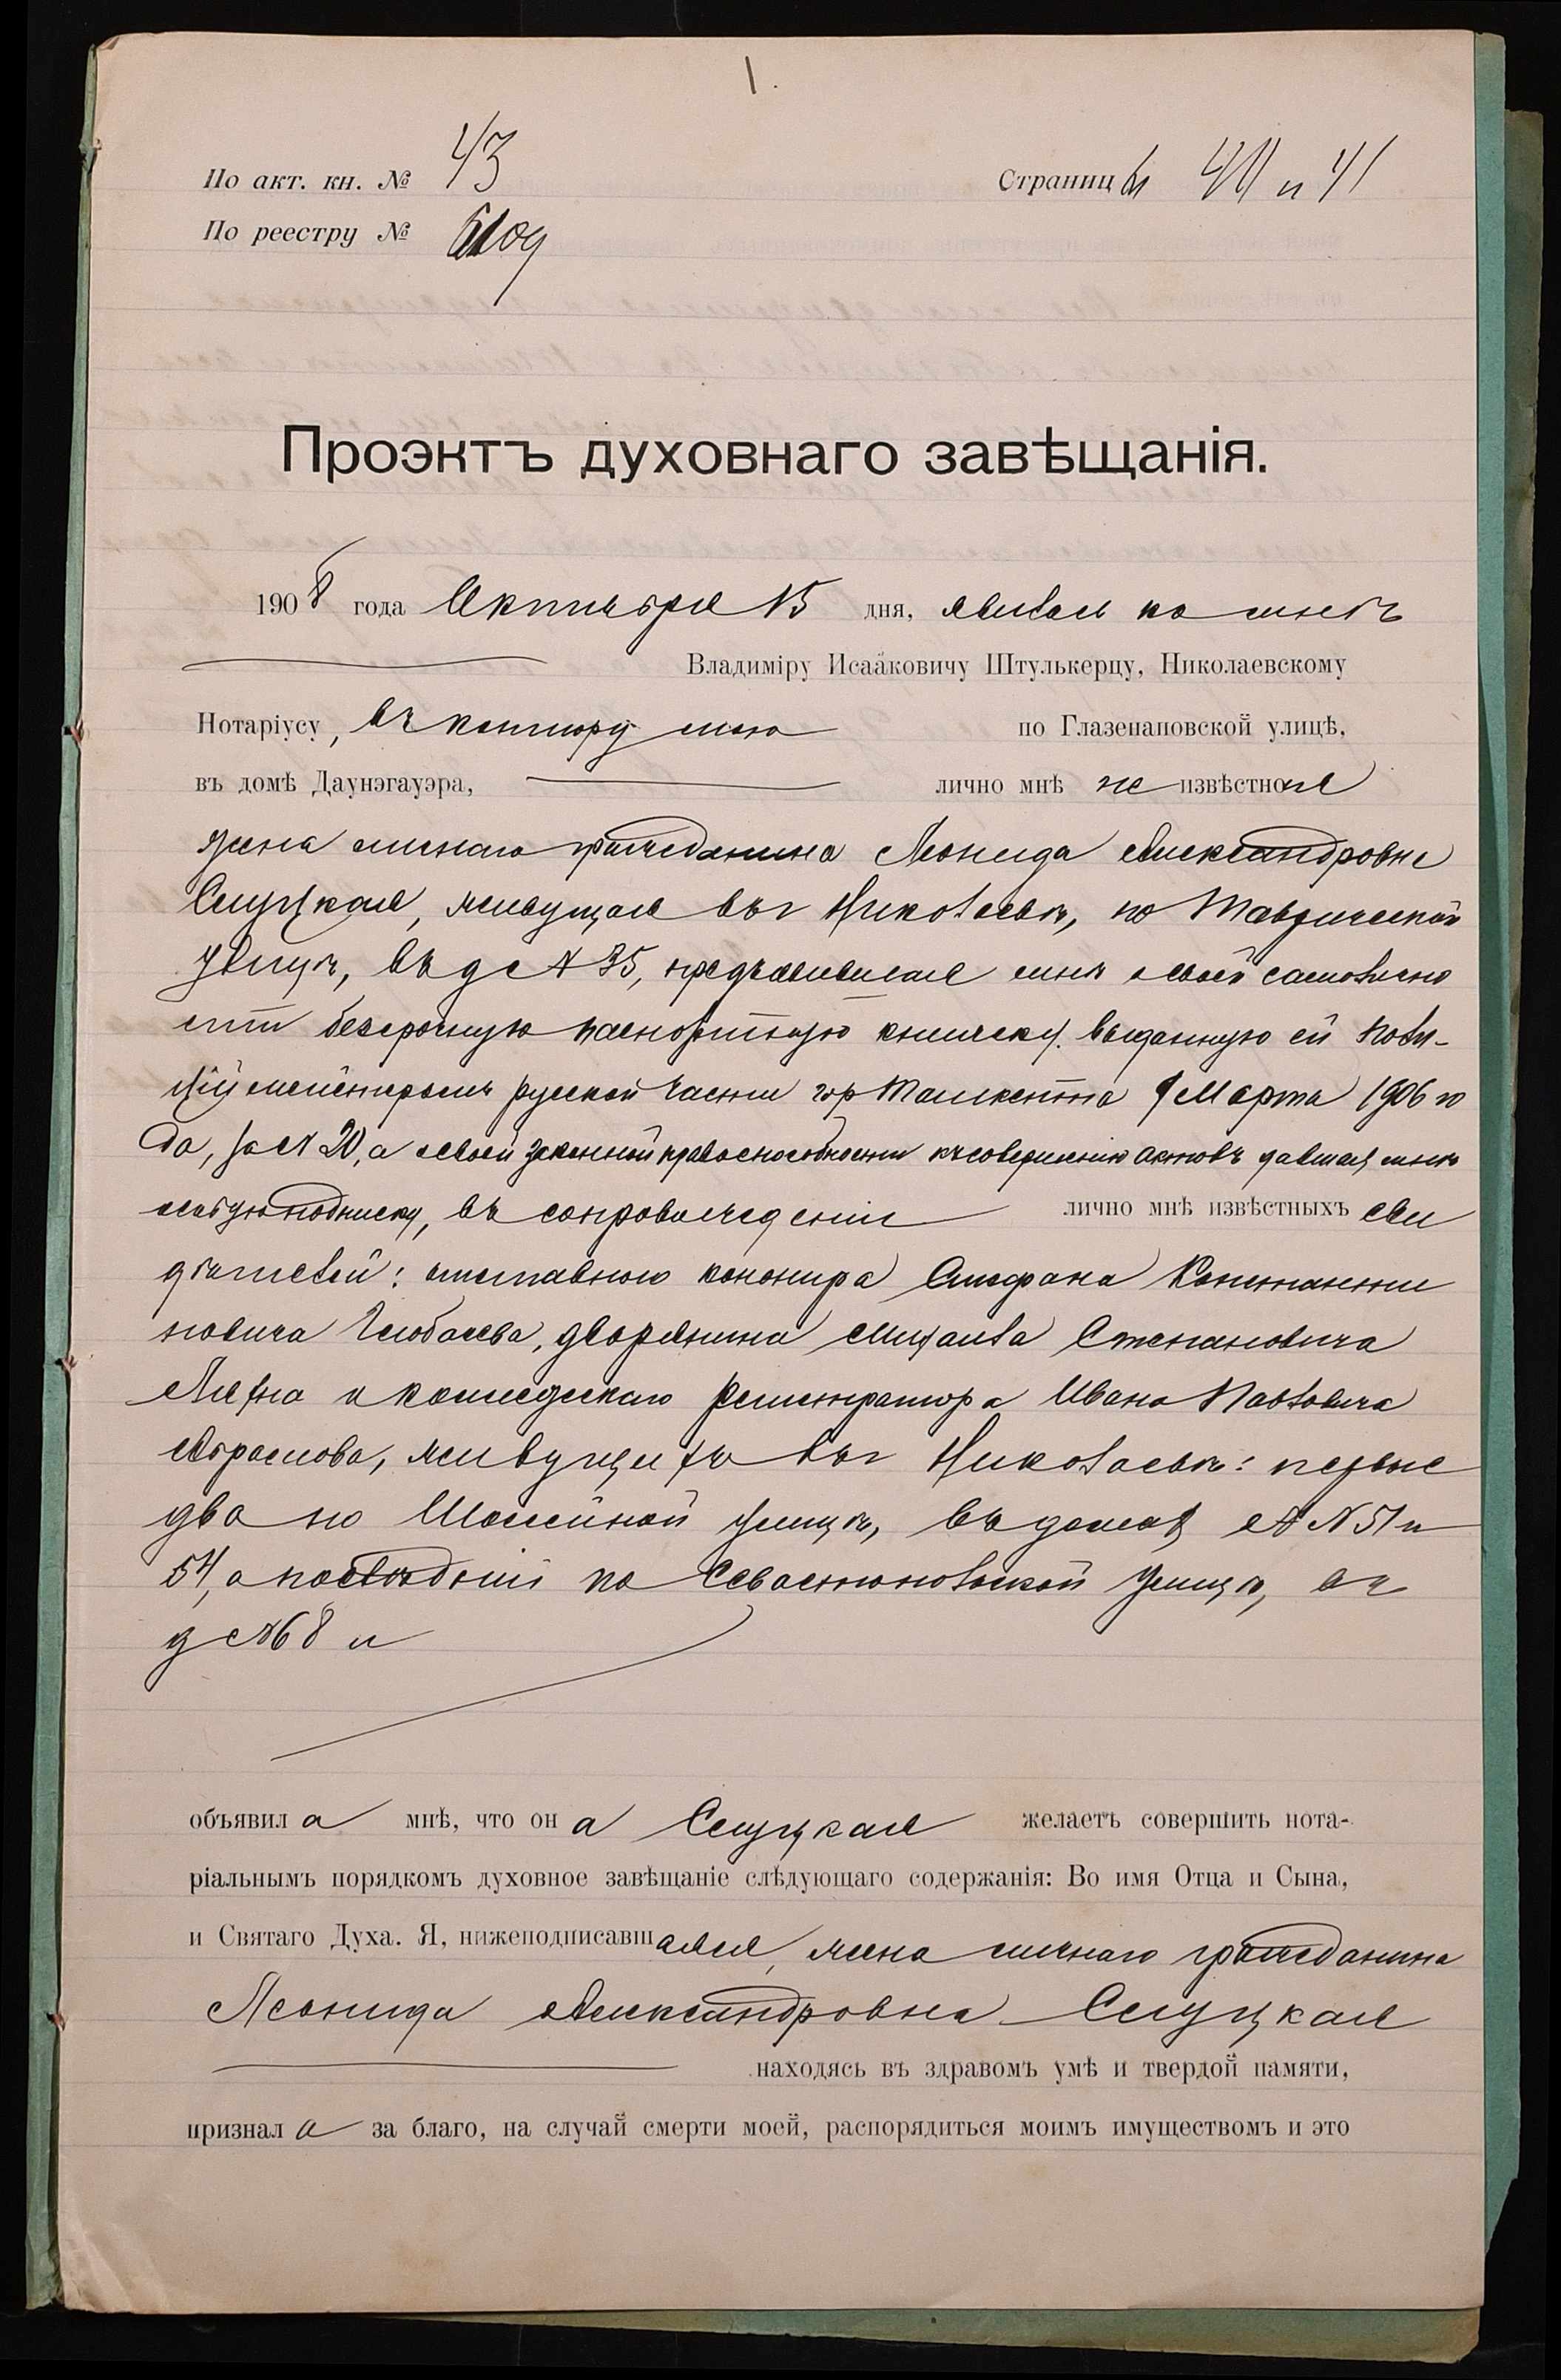 1.
По акт. кн. № 43
Страницы 40 и 41
По реестру №
Проэктъ духовнаго завѣщанія.
1908 года Октября 15 дня, явилась ко мнѣ
Владиміру Исааковичу Штулькерцу, Николаевскому
Нотаріусу, въ контору мою по Глазенаповской улицѣ,
въ домѣ Даунэгауэра, лично мнѣ не извѣстная
жена личнаго гражданина Леонида Александровна
Слуцкая, живущая въ г Николаевѣ, по Таврической
улицѣ, въ д № 35, предъявившая мнѣ о своей самолично
сти безсрочную паспортную книжку, выданную ей Поли-
ціймейстеромъ русской части гор Ташкента 9 Марта 1906 го
да, за № 20, а о своей законной правоспособности къ совершенію актовъ давшая мнѣ
особую подписку, въ сопровожденіи лично мнѣ извѣстныхъ сви
дѣтелей: отставного канонира Стефана Константи
новича дворянина Михаила Степановича
и коллежскаго регистратора Ивана Павловича
Абрасова, живущихъ въ г Николаевѣ: первые
два по улицѣ, въ домахъ № № 51 и
54, а послѣдній по Севастопольской улицѣ, въ
д № 68 и
объявила мнѣ, что она Слуцкая желаетъ совершить нота-
ріальнымъ порядкомъ духовное завѣщаніе слѣдующаго содержанія: Во имя Отца и Сына,
и Святаго Духа. Я, нижеподписавшаяся, жена личнаго гражданина
Леонида Александровна Слуцкая
находясь въ здравомъ умѣ и твердой памяти,
признала за благо, на случай смерти моей, распорядиться моимъ имуществомъ и это